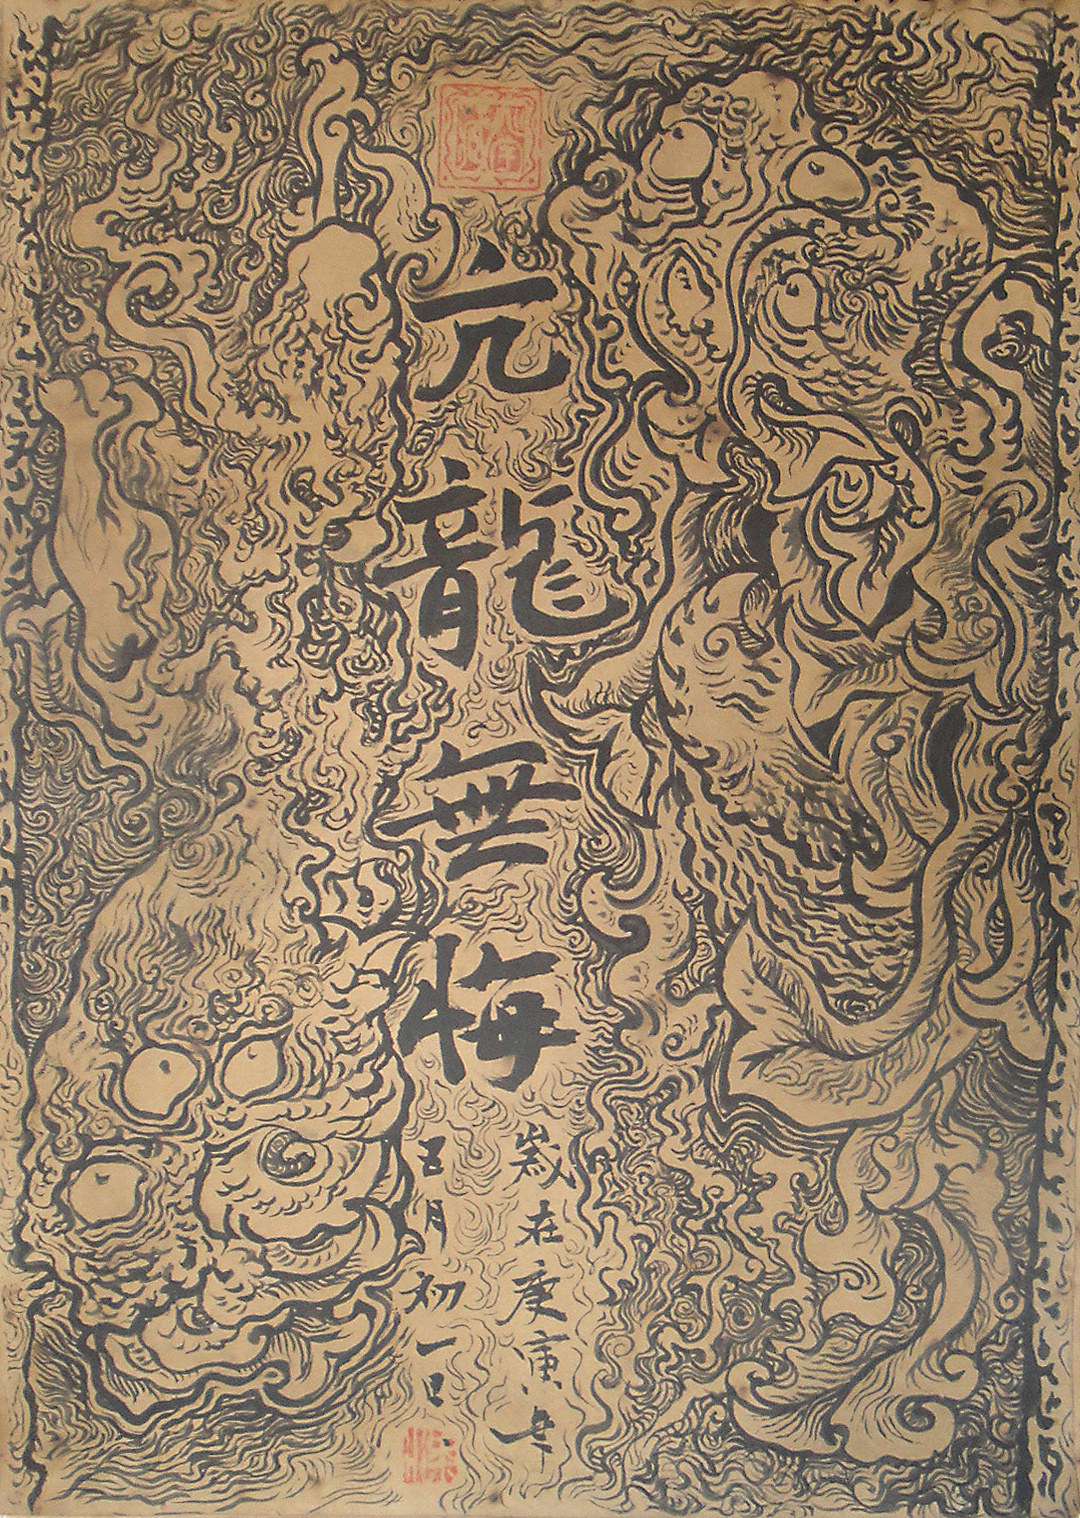 亢龍無悔
歲在庚寅年
五月初一日